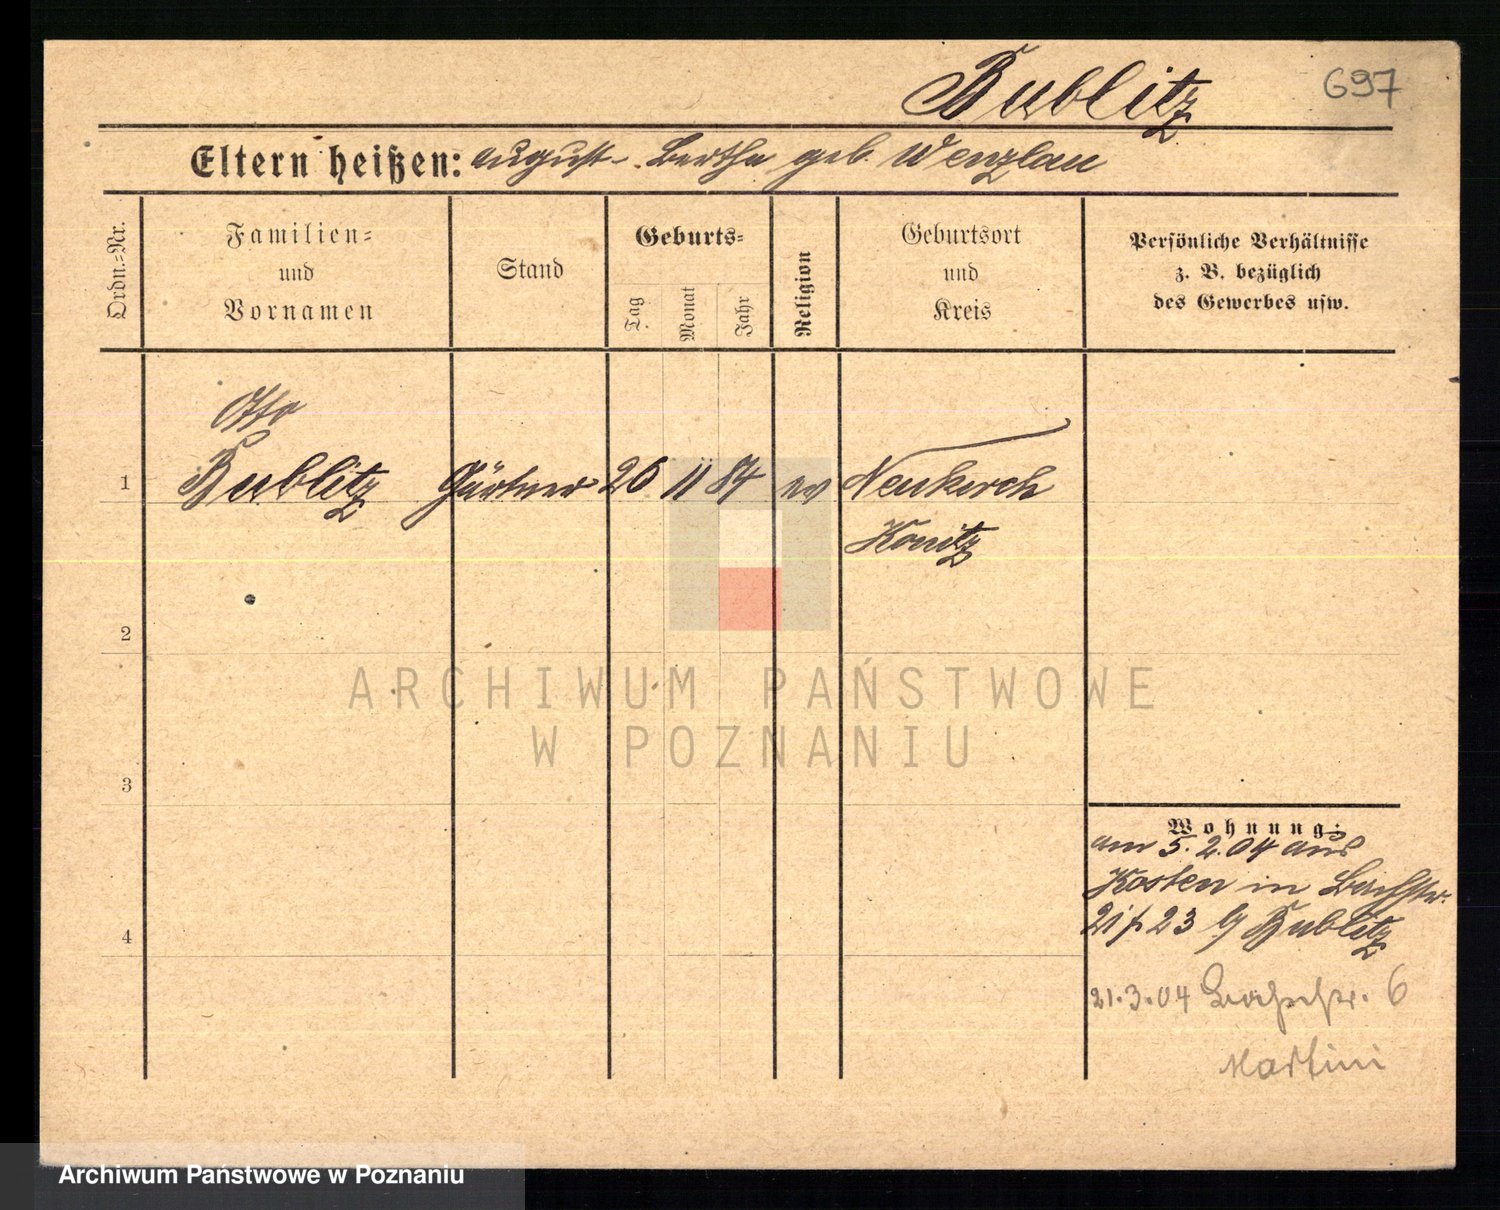 Bublitz
697
Eltern heißen: August - Bertha geb. Wenzlau
Ordn.=Nr.
Familien=
und
Vornamen
Stand
Geburts=
Tag
Monat
Jahr
Religion
Geburtsort
und
Kreis
Persönliche Verhältnisse
z. B. bezüglich
des Gewerbes usw.
Otto
1 Bublitz Gärtner 26 11 84 ev Neukirch
Konitz
2
3
4
Wohnung:
am 5.2.04 aus
Kosten in Bachstr.
21 p 23 Bublitz
21.3.04 6
Martini
ARCHIWUM PAŃSTWOWE
W POZNANIU
Archiwum Państwowe w Poznaniu